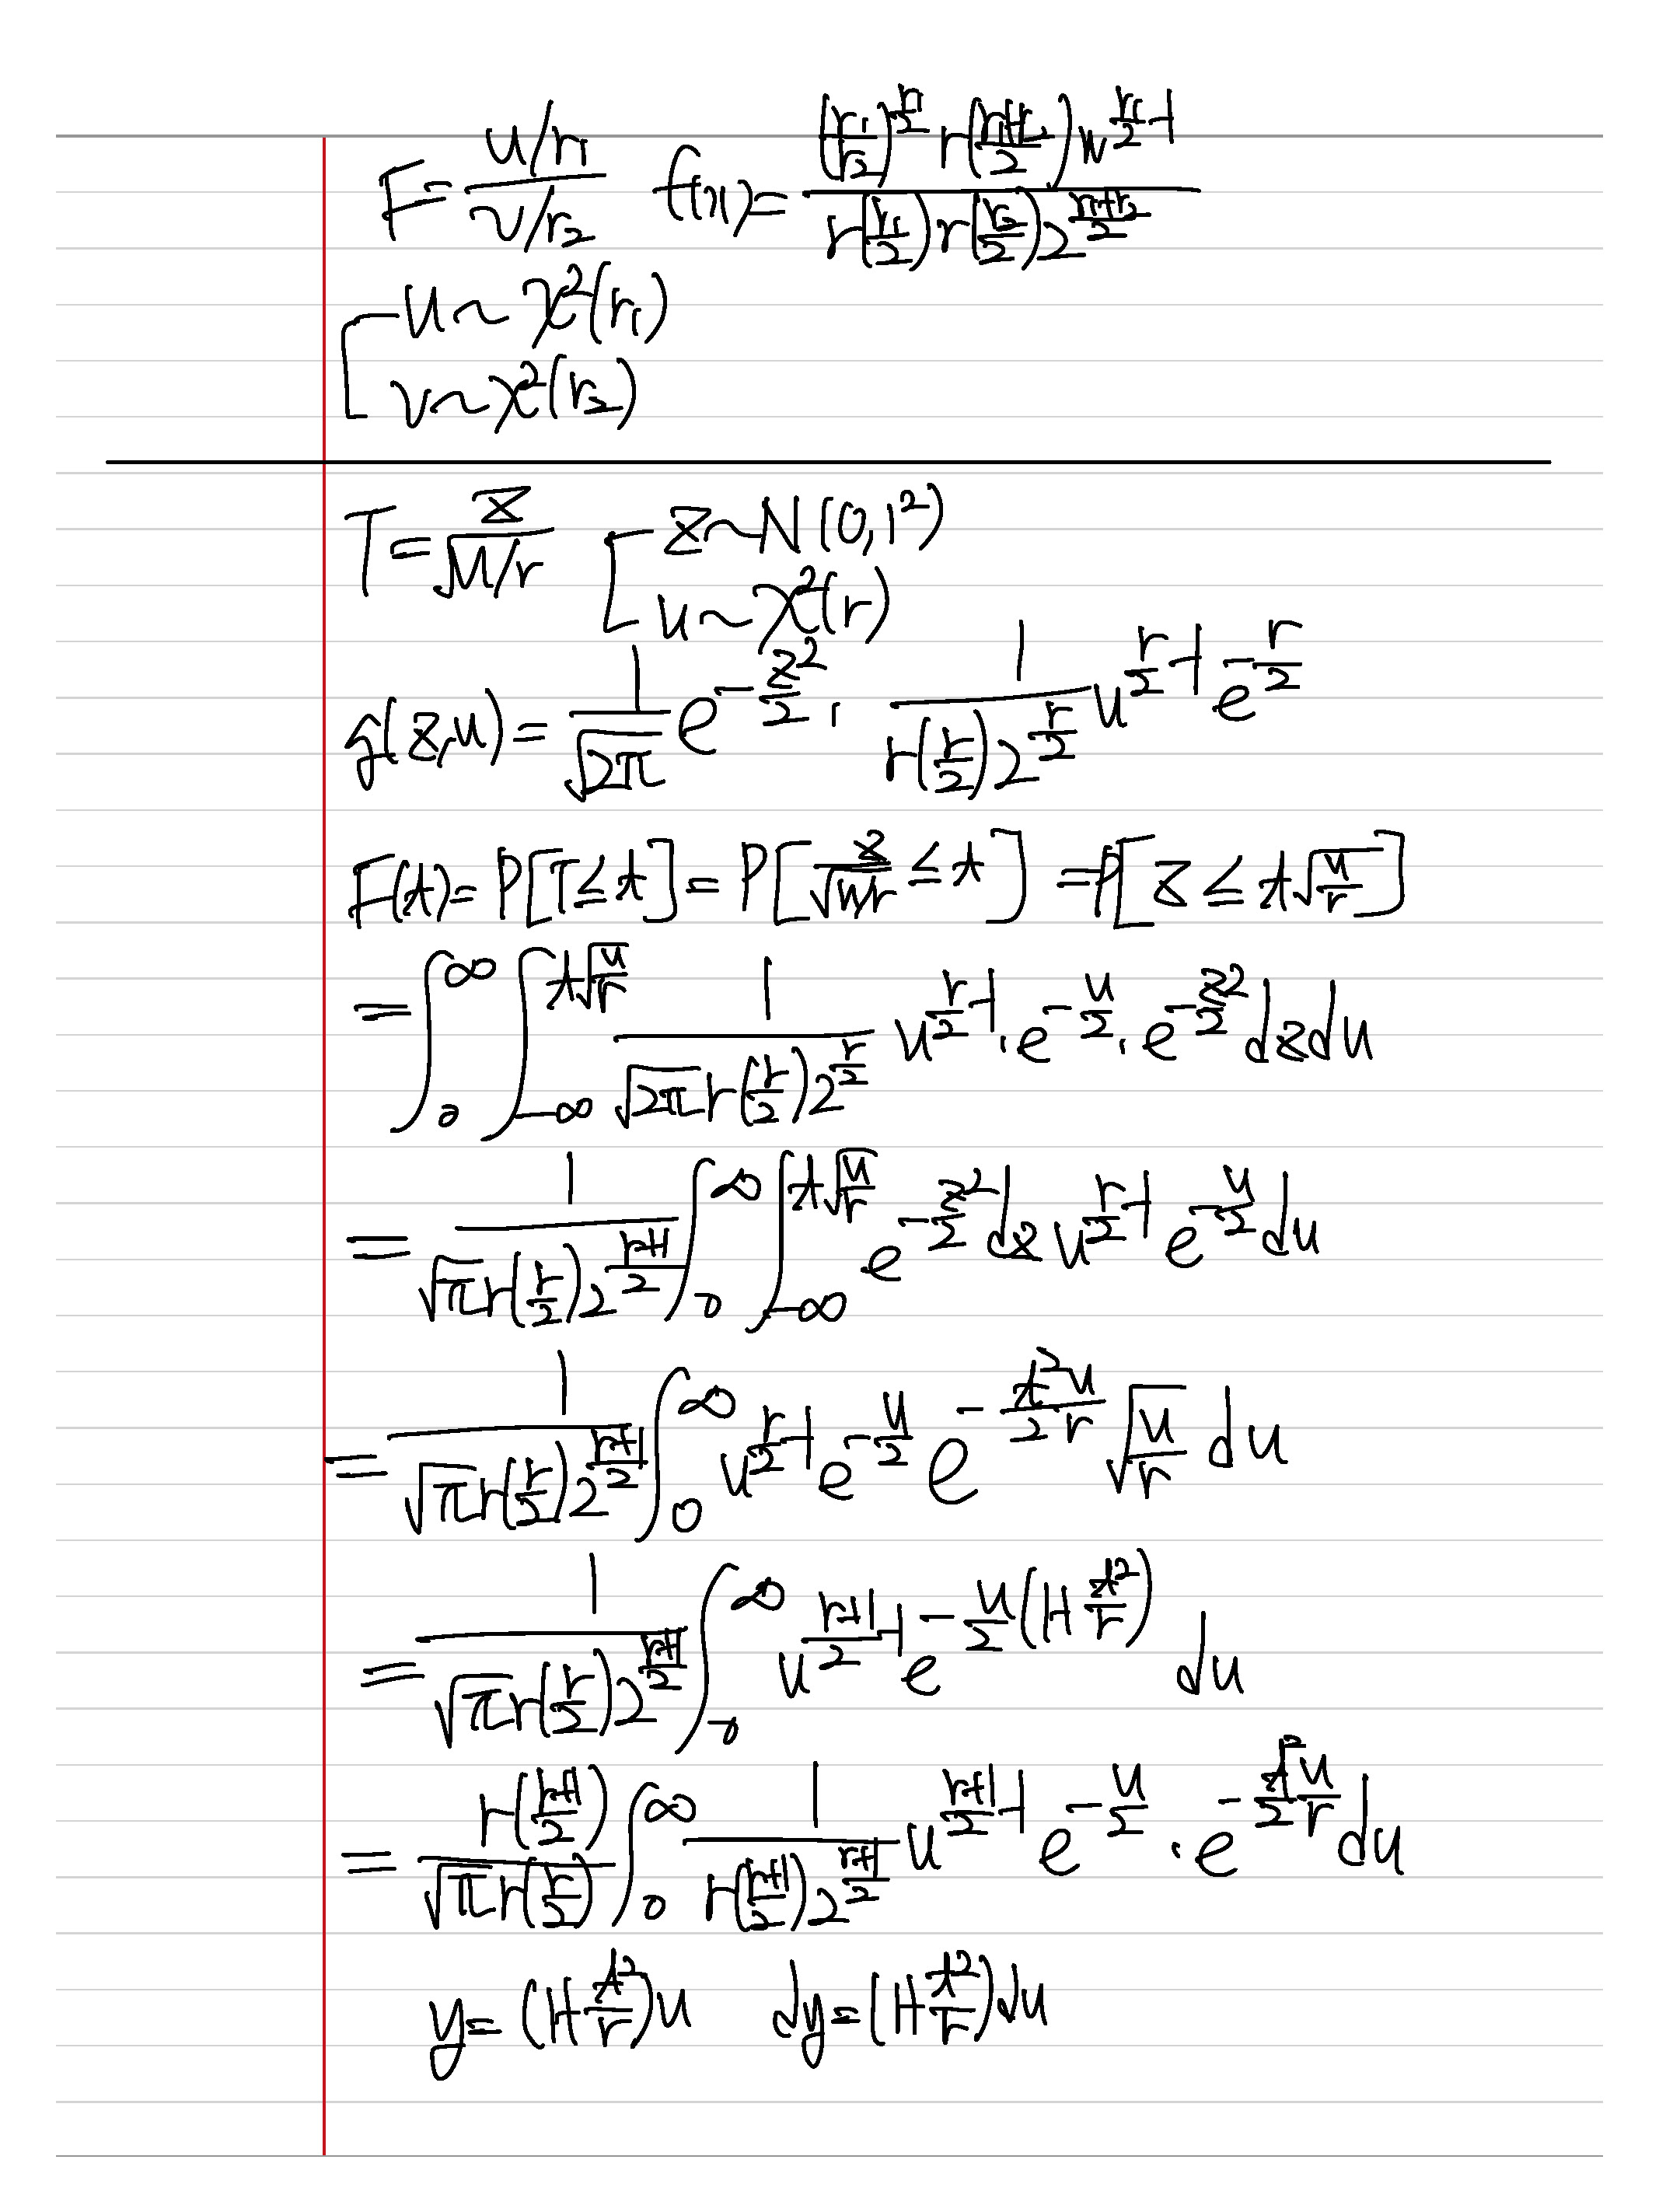 F = \frac{u/r_1}{v/r_2} f(x) = \frac{(\frac{r_1}{r_2})^{\frac{r_1}{2}} Γ(\frac{r_1+r_2}{2}) w^{\frac{r_1}{2}-1}}{Γ(\frac{r_1}{2}) Γ(\frac{r_2}{2}) 2^{\frac{r_1+r_2}{2}}}
u ~ χ²(r_1)
v ~ χ²(r_2)
T = \frac{z}{\sqrt{u/r}} z ~ N(0, 1²)
u ~ χ²(r)
g(z, u) = \frac{1}{\sqrt{2π}} e^{-\frac{z²}{2}} · \frac{1}{Γ(\frac{r}{2}) 2^{\frac{r}{2}}} u^{\frac{r}{2}-1} e^{-\frac{r}{2}}
F(t) = P[T ≤ t] = P[\frac{z}{\sqrt{u/r}} ≤ t] = P[z ≤ t\sqrt{\frac{u}{r}}]
= ∫_0^∞ ∫_{-∞}^{t\sqrt{\frac{u}{r}}} \frac{1}{\sqrt{2π} Γ(\frac{r}{2}) 2^{\frac{r}{2}}} u^{\frac{r}{2}-1} · e^{-\frac{u}{2}} · e^{-\frac{z²}{2}} dz du
= \frac{1}{\sqrt{π} Γ(\frac{r}{2}) 2^{\frac{r+1}{2}}} ∫_0^∞ ∫_{-∞}^{t\sqrt{\frac{u}{r}}} e^{-\frac{z²}{2}} dz u^{\frac{r}{2}-1} e^{-\frac{u}{2}} du
= \frac{1}{\sqrt{π} Γ(\frac{r}{2}) 2^{\frac{r+1}{2}}} ∫_0^∞ u^{\frac{r}{2}-1} e^{-\frac{u}{2}} e^{-\frac{t²}{2}\frac{u}{r}} \sqrt{\frac{u}{r}} du
= \frac{1}{\sqrt{π} Γ(\frac{r}{2}) 2^{\frac{r+1}{2}}} ∫_0^∞ u^{\frac{r+1}{2}-1} e^{-\frac{u}{2}(1+\frac{t²}{r})} du
= \frac{Γ(\frac{r+1}{2})}{\sqrt{π} Γ(\frac{r}{2})} ∫_0^∞ \frac{1}{Γ(\frac{r+1}{2}) 2^{\frac{r+1}{2}}} u^{\frac{r+1}{2}-1} e^{-\frac{u}{2}} · e^{-\frac{t²}{2}\frac{u}{r}} du
y = (1+\frac{t²}{r})u dy = (1+\frac{t²}{r})du